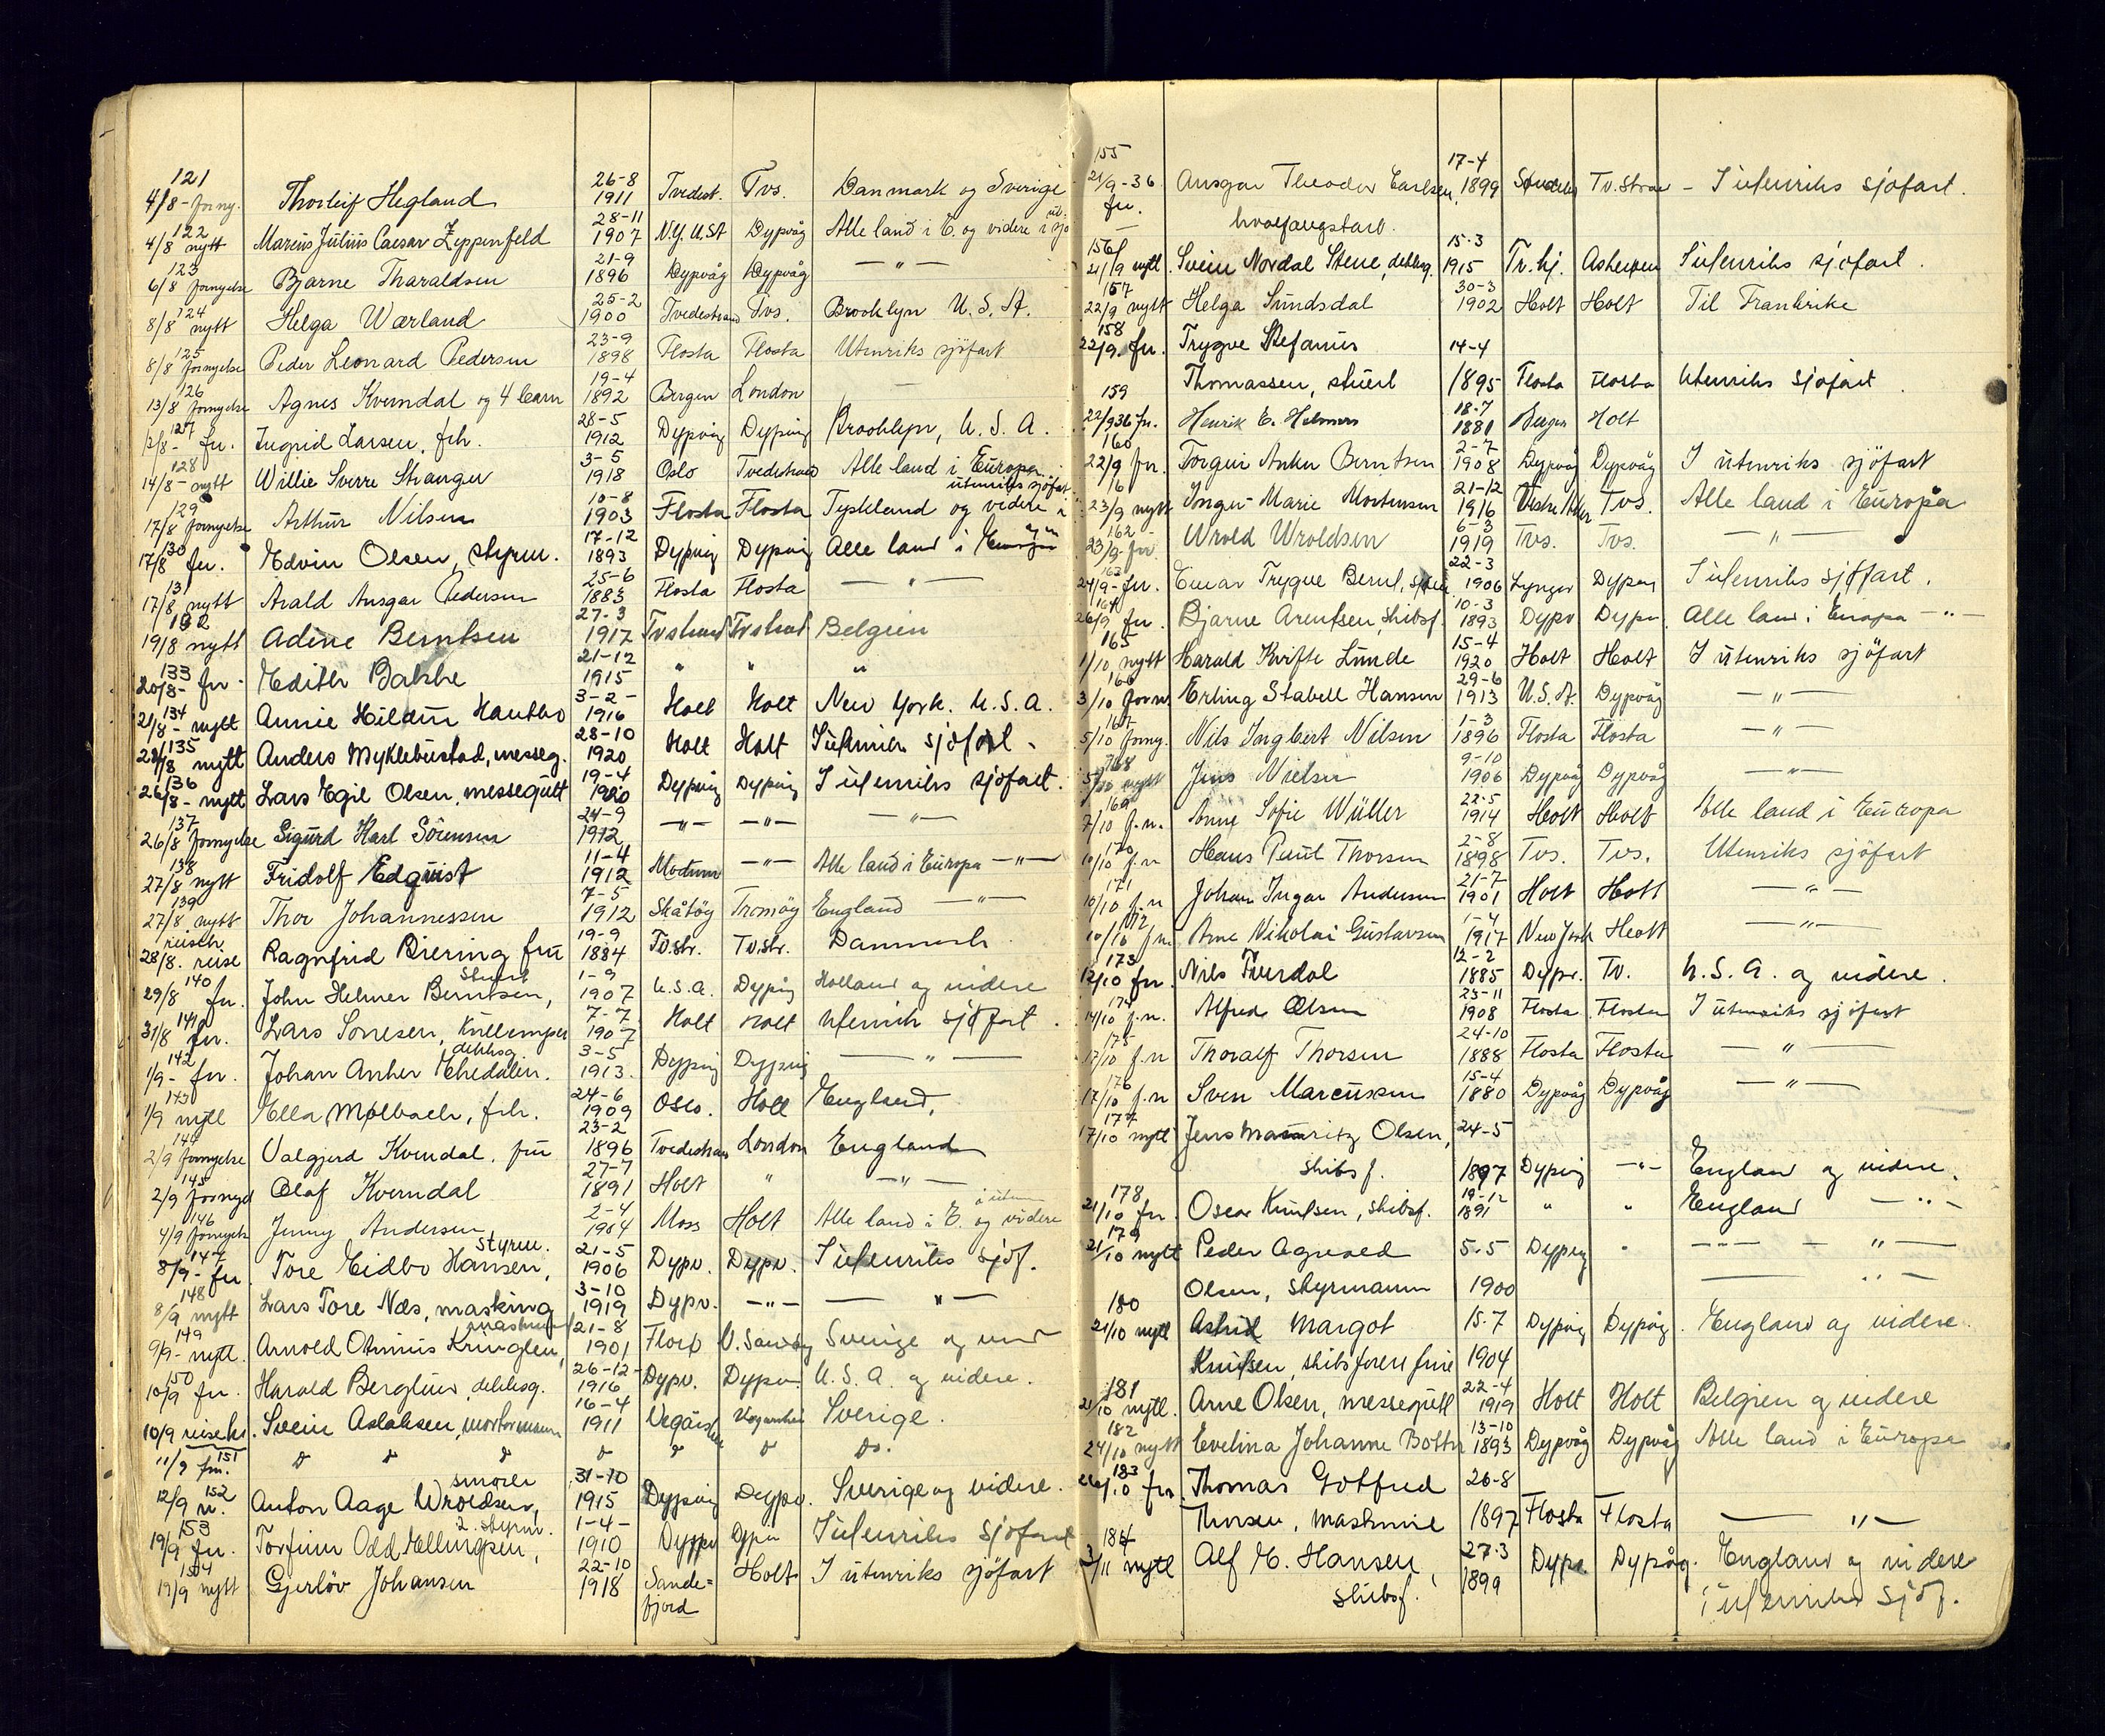 121
4/8 - forny. Thorleif Hegland 26-8 1911 Tvedest. Tvs. Danmark og Sverige
122
4/8 nytt Marcus Julius Caesar Zeppenfeld 28-11 1907 N.Y. U.St Dypvåg Alle land i E. og videre i ut. sjø
123
6/8 fornyelse Bjarne Tharaldsen 21-9 1896 Dypvåg Dypvåg — " —
124
8/8 nytt Helga Wærland 25-2 1900 Tvedestrand Tvs. Brooklyn U.S.A.
125
8/8 fornyelse Peder Leonard Pedersen 23-9 1898 Flosta Flosta Utenriks sjöfart
126
13/8 fornyelse Agnes Kverndal og 4 barn 19-4 1892 Bergen London —
127
12/8 - fn. Ingrid Larsen, frk. 28-5 1912 Dypvåg Dypvåg Brooklyn, U.S.A.
128
14/8 - nytt Willie Sverre Stranger 3-5 1918 Oslo Tvedestrand Alle land i Europa
129 utenriks sjöfart
17/8 fornyelse Arthur Nilsen 10-8 1903 Flosta Flosta Tyskland og videre i
130
17/8 fn. Edvin Olsen, styrm. 17-12 1893 Dypvåg Dypvåg Alle land i Europa
131
17/8 nytt Arald Ansgar Pedersen 25-6 1883 Flosta Flosta — " —
132
19/8 nytt Adine Berntsen 27-3 1917 Tvstrand Tvstrand Belgien
133
20/8 - fn. Edith Bakke 21-12 1915 " " "
134
21/8 - nytt Annie Hildur Hantho 3-2- 1916 Holt Holt New York. U.S.A.
135
28/8 nytt Anders Myklebustad, messeg. 28-10 1920 Holt Holt I utenriks sjöfart.
136
26/8 - nytt Lars Egil Olsen, messegutt 19-4 1920 Dypvåg Dypvåg I utenriks sjöfart.
137
26/8 fornyelse Sigurd Karl Sörensen 24-9 1912 — " — — " — — " —
138
27/8 nytt Fridolf Edquist 11-4 1912 Modum — " — Alle land i Europa — " —
139
27/8 nytt Thor Johannessen 7-5 1912 Skåtöy Tromöy England — " —
28/8. reise Ragnfrid Biering fru 19-9 1884 Tv.str. Tv.str. Danmark
140 stuert
29/8 fn. John Helmer Berntsen, 1-9 1907 U.S.A. Dypvåg Holland og videre
141
31/8 fn. Lars Sonesen, Kullemper 7-7 1907 Holt Holt Utenriks sjöfart.
142 dekksg.
1/9 - fn. Johan Anker Ekedalen. 3-5 1913 Dypvåg Dypvåg — " —
143
1/9 nytt Ella Mølbach, frk. 24-6 1909 Oslo. Holt England.
144
2/9 fornyelse Valgjerd Kverndal. fru 23-2 1896 Tvedestrand London England
145
2/9 fornyd Olaf Kverndal 27-7 1891 Holt " — " —
146
4/9 fornyelse Jenny Andersen 2-4 1904 Moss Holt Alle land i E. og videre
147 styrm.
8/9 - fn. Tore Eidbo Hansen, 21-5 1906 Dypv. Dypv. I utenriks sjöf.
148
8/9 nytt Lars Tore Næs, masking 3-10 1919 Dypv. — " — — " —
149
9/9 - nytt. Arnold Othinius Kringlen, 21-8 1901 Florö Sverige og
150
10/9 fn. Harald Berglund, dekksg. 26-12- 1916 Dypv. Dypv. U.S.A. og videre.
10/9 Svein Aslaksen, 16-4 1911 Sverige.
151
11/9 fn. do do do do do do Do.
152 smører
12/9 n. Anton Aage Wroldsen, 31-10 1915 Dypvåg Dypv. Sverige og videre.
153 2. styrm.
19/9 fn. Torfinn Odd Ellingsen, 1-4- 1910 Dypv Dypv I utenriks sjöfart
154
19/9 nytt Gjerlöv Johansen 22-10 1918 Sande= fjord Holt I utenriks sjöfart
155
21/9 - 36 fn. Ansgar Theodor Carlsen, 17-4 1899 Tv.strand - I utenriks sjöfart.
hvalfangstarb.
156
21/9 nytt. Svein Nordal Stene, dekksg. 15-3 1915 Tv.hj. I utenriks sjöfart.
157
22/9 nytt Helga Sundsdal 30-3 1902 Holt Holt Til Frankrike
158
22/9. fn. Trygve Stefanius 14-4
Thomassen, stuert 1895 Flosta Flosta Utenriks sjöfart.
159
22/9 36 fn. Henrik E. Helmers 18-7 1881 Bergen Holt
160
22/9 fn. Torgeir Anker Berntsen 2-7 1908 Dypvåg Dypvåg I utenriks sjöfart
23/9 nytt Inger Marie Mortensen 21-12 1916 Vestre Aker Tvs. Alle land i Europa
162
23/9 fn. Wrold Wroldsen 6-3 1919 Tvs. Tvs. — " —
163
24/9 - fn. Einar Trygve Bernt. 22-3 1906 Lyngør Dypvåg I utenriks sjöfart.
164
26/9 fn. Bjarne Arentsen, skibsf. 10-3 1893 Dypv Dypv. Alle land i Europa — " —
165
1/10 nytt Harald Kvifte Lunde 15-4 1920 Holt Holt I utenriks sjöfart
166
3/10 forn. Erling Stabell Hansen 29-6 1913 U.S.A. Dypvåg — " —
167
5/10 forny. Nils Ingbert Nilsen 1-3 1896 Flosta Flosta — " —
168
5/10 nytt Jens Nielsen 9-10 1906 Dypvåg Dypvåg — " —
169
7/10 f.n. Anne Sofie Wüller 22-5 1914 Holt Holt Alle land i Europa
170
10/10 f.n Hans Puul Thorsen 2-8 1898 Tvs. Tvs. Utenriks sjöfart
171
10/10 f.n Johan Ingar Andersen 21-7 1901 Holt Holt — " —
172
10/10 f.n. Arne Nikolai Gustavsen 1-4 1917 New York Holt — " —
173
12/10 fn. Nils Furdal 12-2 1885 Dypv. Tv. U.S.A. og videre.
174
14/10 f.n. Alfred Olsen 23-11 1908 Flosta Flosta I utenriks sjöfart
175
17/10 f.n Thoralf Thorsen 24-10 1888 Flosta Flosta — " —
176
17/10 f.n Sven Marcussen 15-4 1880 Dypvåg Dypvåg — " —
177
17/10 nytt Jens Mauritz Olsen, 24-5
skibsf. 1897 Dypvåg — " — England og videre.
178
21/10 fn. Oscar Knutsen, skibsf. 19-12 1891 " " England — " —
179
21/10 nytt Peder Agvald 5-5 Dypvåg " — — " —
Olsen, styrmann 1900 — " —
180
21/10 nytt Astrid Margot 15-7 Dypvåg Dypvåg. England og videre.
Knutsen, skibsförers frue 1904
181
21/10 nytt. Arne Olsen, messegutt 22-4 1919 Holt Holt Belgien og videre
182
24/10 nytt Evelina Johanne Botten 13-10 1893 Dypvåg Dypvåg Alle land i Europa
183
26/10 fn. Thomas Gotfred 26-8
Thorsen, maskinist 1897 Flosta Flosta — " —
184
3/11 nytt Alf E. Hansen, 27-3 1899 Dypv. Dypvåg. England og videre
skibsf. i utenriks sjöf.